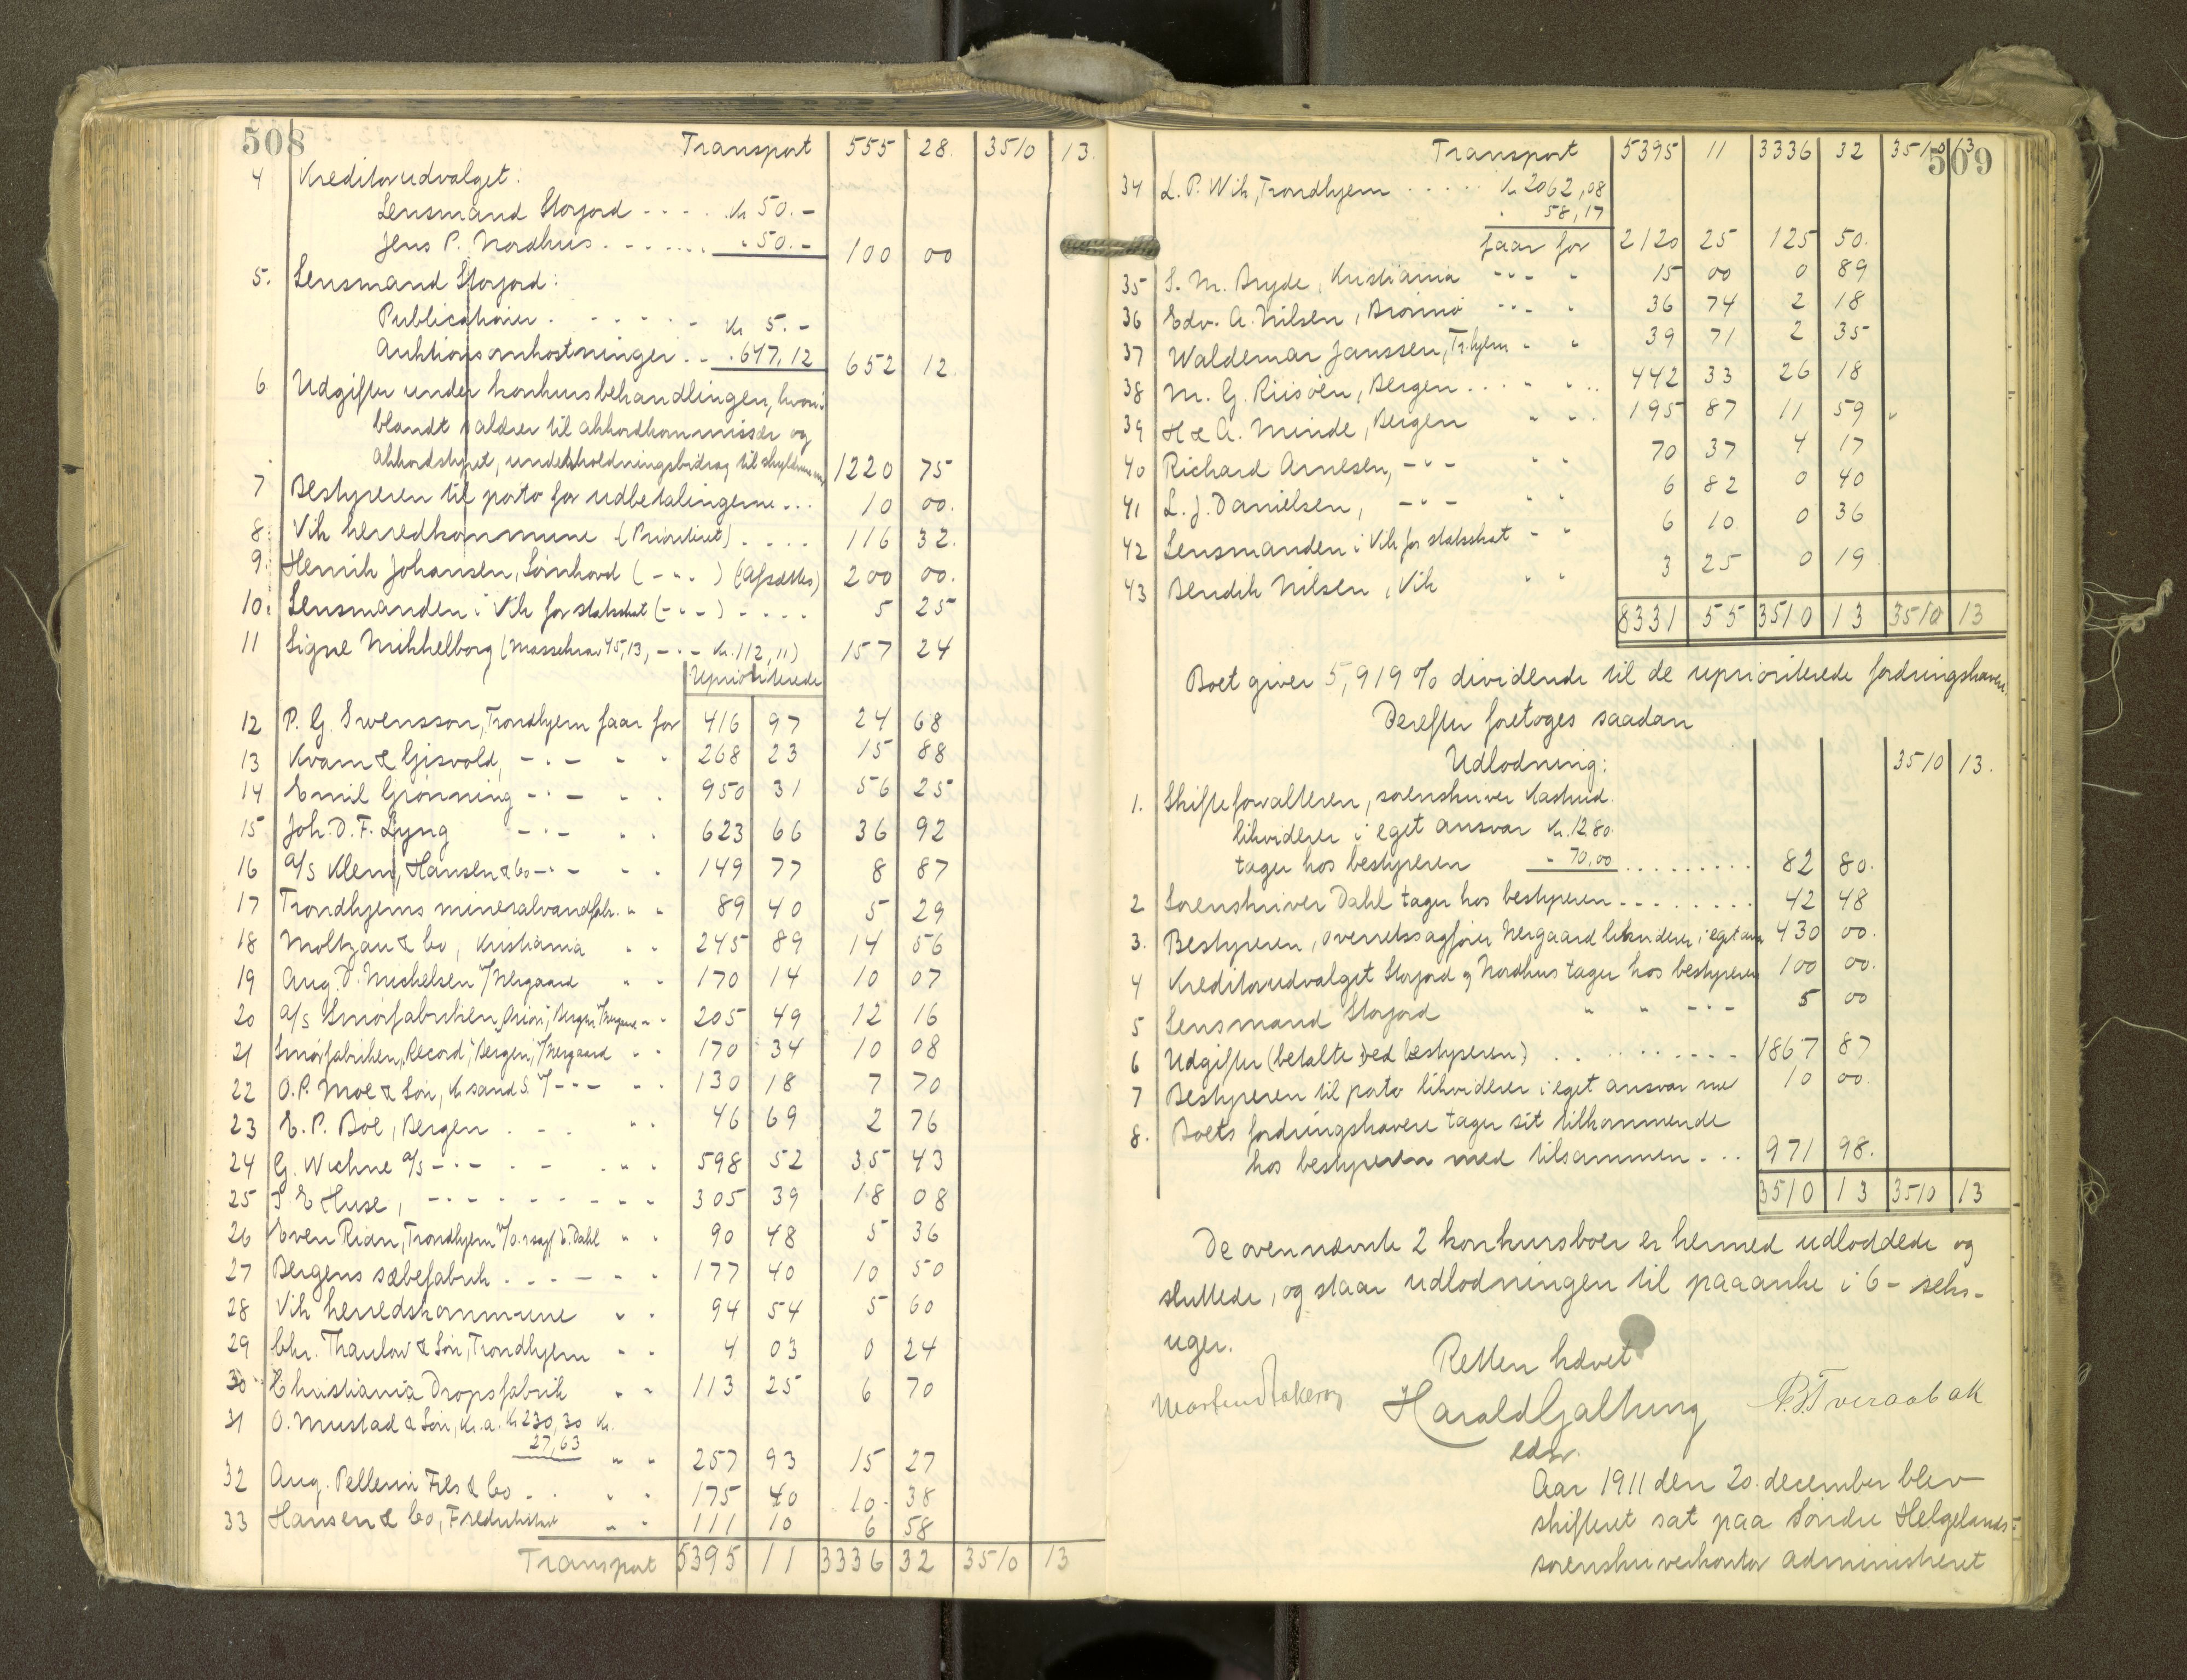 508
Transport 555 28. 3510 13.
4 Kreditorudvalget:
Lensmand Storjord - - - - Kr 50. -
Jens P. Nordhus. - - - - - " 50. - 100 00
5. Lensmand Storjord:
Publicationer. - - - - - Kr 5. -
Auktionsomkostninger - - " 647,12 652 12.
6 Udgifter under konkursbehandlingen, hvori-
blandt salærer til akkordkommissær og
akkordstyret, underholdningsbidrag til skyldneren 1220 75
7 Bestyreren til porto for udbetalingerne ... 10 00.
8. Vik herredkommune (Prioritert) . . . . 116 32.
9. Henrik Johansen, Sørhorvd ( - " - ) (afsættes) 200 00.
10. Lensmanden i Vik for statsskat ( - " - ) - - - - 5 25
11 Signe Mikkelborg (Massekrav 45,13, - " - Kr. 112,11) 157 24
Uprioriterede
12 P. G. Swensson, Trondhjem faar for 416 97 24 68
13 Kvam & Gisvold, - " - " " 268 23 15 88
14 Emil Grønning - " - " " 950 31 56 25
15 Joh. D. F. Lyng - " - " " 623 66 36 92
16 A/S Klem, Hansen & Co - " - " " 149 77 8 87
17 Trondhjems mineralvandfabr. " " 89 40 5 29
18 Moltzau & Co, Kristiania " " 245 89 14 56
19 Aug. D. Michelsen v/ Nergaard " " 170 14 10 07
20 A/S Smørfabriken "Orion", Bergen v/ Nergaard " " 205 49 12 16
21 Smørfabriken "Record", Bergen, v/ Nergaard " " 170 34 10 08
22 O. P. Moe & Søn, Kr sand S. v/ - " - " " 130 18 7 70
23 E. P. Bøe, Bergen . - . " " 46 69 2 76
24 G. Wichne A/S - " - . - . " " 598 52 35 43
25 S. E Huse, - " - - - - - " " 305 39 18 08
26 Even Rian, Trondhjem v/ O. rsagf. D. Dahl " " 90 48 5 36
27 Bergens sæbefabrik . - - - " " 177 40 10 50
28 Vik herredskommune " " 94 54 5 60
29 Chr. Thaulow & Søn, Trondhjem " " 4 03 0 24
30 Christiania Dropsfabrik " " 113 25 6 70
31 O. Mustad & Søn, Kr. a. Kr 230,30 Kr.
27,63 " " 257 93 15 27
32 Aug. Pellerin Fils & Co - . " " 175 40 10. 38
33 Hansen & Co, Fredrikstad " " 111 10 6 58
Transport 5395 11 3336 32 3510 13
509
Transport 5395 11 3336 32 3510 13
34 L. P. Wik, Trondhjem . . . . . Kr 2062,08
" 58,17
faar for 2120 25 125 50.
35 S. M. Bryde, Kristiania - " - " 15 00 0 89
36 Edv. A. Nilsen, Brønnø - " - " 36 74 2 18
37 Waldemar Janssen, Tr.hjem " " 39 71 2 35
38 M. G. Riisøen, Bergen . . . " " . . 442 33 26 18
39 H & A. Minde, Bergen " " . 195 87 11 59
40 Richard Arnesen, - " - " " 70 37 4 17
41 L. J. Danielsen, - " - " " 6 82 0 40
42 Lensmanden i Vik for statsskat - " 6 10 0 36
43 Bendik Nilsen, Vik " " 3 25 0 19
8331 55 3510 13 3510 13
Boet giver 5,919 % dividende til de uprioriterede fordringshavere.
Derefter foretoges saadan
Udlodning: 3510 13.
1. Skifteforvalteren, sorenskriver Kastrud
likviderer i eget ansvar Kr. 12.80
tager hos bestyreren " 70,00 . . . . . . . . . 82 80.
2 Sorenskriver Dahl tager hos bestyreren - - - . . . . . 42 48
3. Bestyreren, overretssagfører Nergaard likviderer i eget ansvar 430 00.
4 Kreditorudvalget Storjord og Nordhus tager hos bestyreren 100 00.
5 Lensmand Storjord " " - " - 5 00
6 Udgifter (betalte ved bestyreren) . . . . . . - - - - 1867 87
7 Bestyreren til porto likviderer i eget ansvar med 10 00
8. Boets fordringshavere tager sit tilkommende
hos bestyreren med tilsammen . . . 971 98.
3510 13 3510 13
De ovennævnte 2 konkursboer er hermed udloddede og
sluttede, og staar udlodningen til paaanke i 6 - seks -
uger.
Retten hævet
Harald Galtung
edsv.
Aar 1911 den 20. december blev
skifteret sat paa Søndre Helgelands
sorenskriverkontor administreret